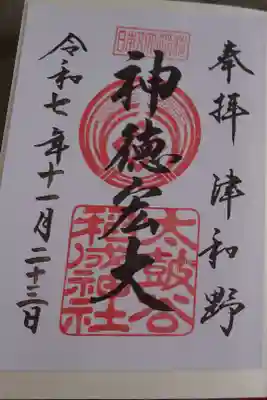 奉拝 津和野
神徳宏大
太皷谷
稲成神社
令和七年十一月二十三日